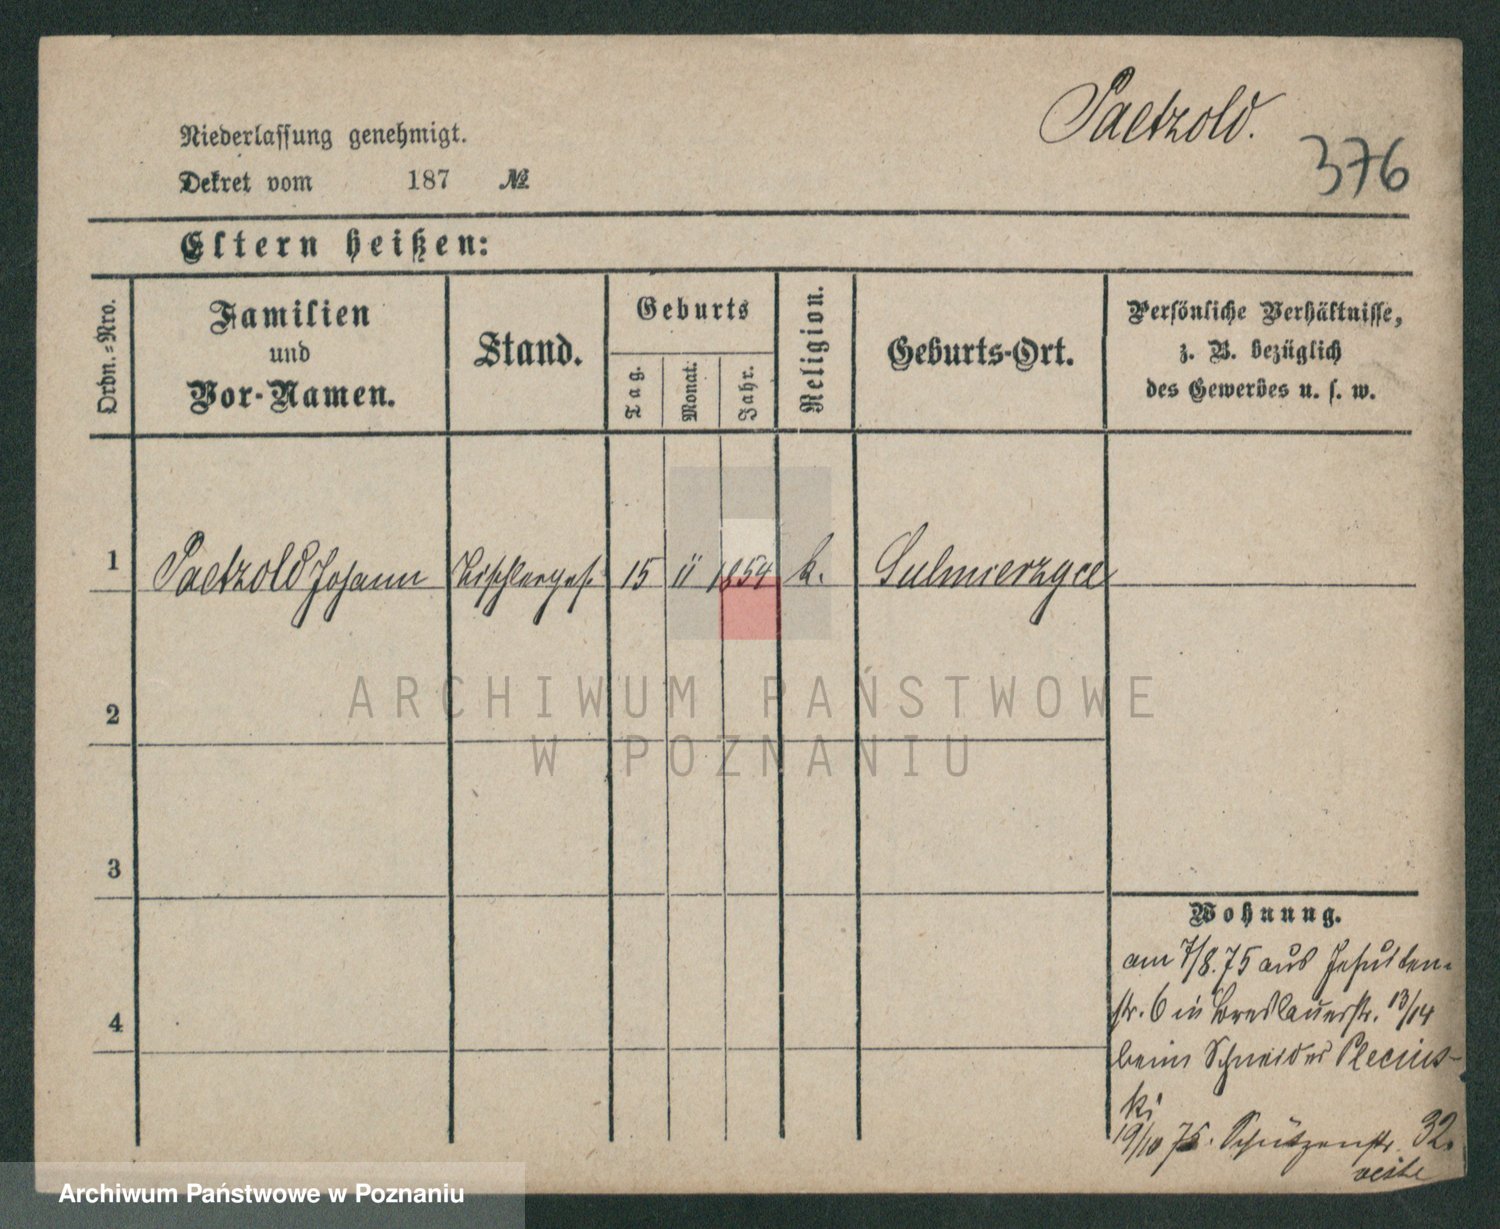 Paetzold.
376
Niederlassung genehmigt.
Dekret vom 187 №
Eltern heißen:
Ordn.=Nro.
Familien
und
Vor-Namen.
Stand.
Geburts
Tag.
Monat.
Jahr.
Religion.
Geburts-Ort.
Persönliche Verhältnisse,
z. B. bezüglich
des Gewerbes u. s. w.
1 Paetzold Johann Tischlerges. 15 11 1854 k. Sulmierzyce
ARCHIWUM PAŃSTWOWE
W POZNANIU
2
3
4
Wohnung.
am 7/8.75 aus Jesuiten-
str. 6 in Breslauerstr. 13/14
beim Schneider Plecins-
ki
19/10 75. Schützenstr. 32.
Archiwum Państwowe w Poznaniu